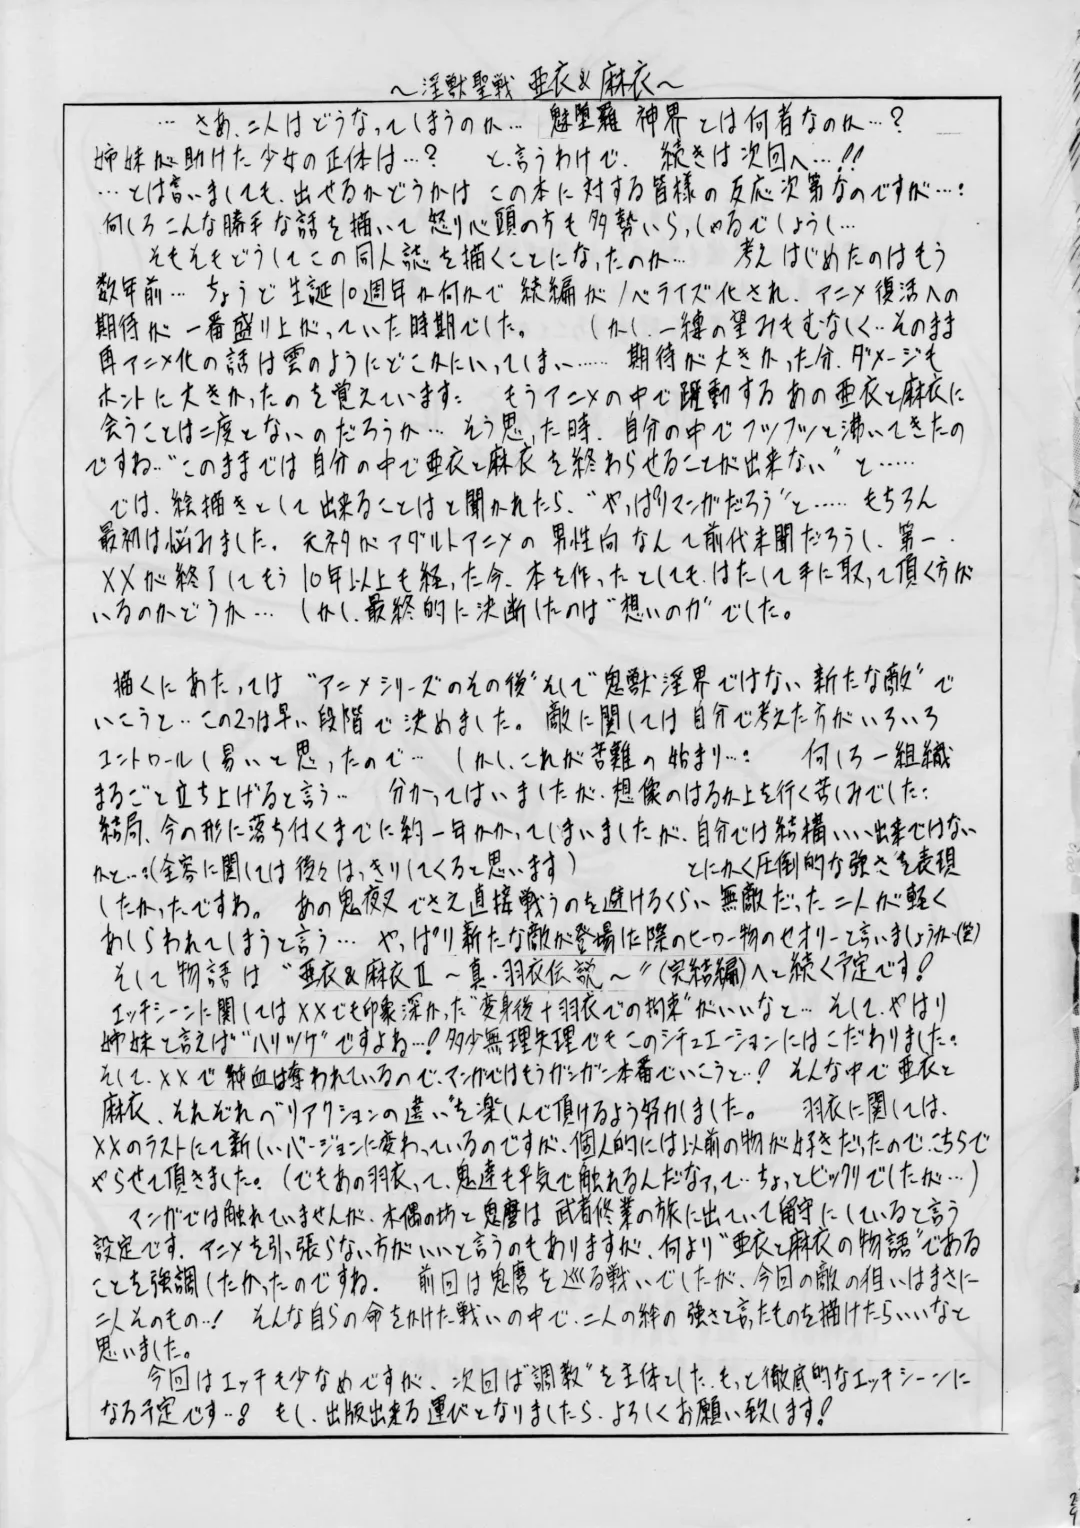 ～淫獣聖戦 亜衣&麻衣～
… さあ、二人はどうなってしまうのか… 魅堕羅 神界とは何者なのか…?
姉妹が助けた少女の正体は…? と、言うわけで、続きは次回へ…!!
…とは言いましても、出せるかどうかは この本に対する皆様の反応次第なのですが…
何しろこんな勝手な話を描いて 怒り心頭の方も多勢いらっしゃるでしょうし…
そもそもどうしてこの同人誌を描くことになったのか… 考えはじめたのはもう
数年前… ちょうど生誕10週年か何かで 続編がノベライズ化され、アニメ復活への
期待が一番盛り上がっていた時期でした。 しかし、一縷の望みもむなしく…そのまま
再アニメ化の話は雲のようにどこかにいってしまい…… 期待が大きかった分、ダメージも
ホントに大きかったのを覚えています。 もうアニメの中で躍動するあの亜衣と麻衣に
会うことは二度とないのだろうか… そう思った時、自分の中でフツフツと沸いてきたの
ですね…“このままでは自分の中で亜衣と麻衣を終わらせることが出来ない”と……
では、絵描きとして出来ることはと聞かれたら、“やっぱりマンガだろう”と…… もちろん
最初は悩みました。元ネタがアダルトアニメの男性向なんて前代未聞だろうし、第一、
XXが終了してもう10年以上も経った今、本を作ったとしても、はたして手に取って頂く方が
いるのかどうか… しかし、最終的に決断したのは“想いの力”でした。
描くにあたっては“アニメシリーズのその後”そして“鬼獣淫界ではない新たな敵”で
いこうと…この2つは早い段階で決めました。敵に関しては自分で考えた方がいろいろ
コントロールし易いと思ったので… しかし、これが苦難の始まり… 何しろ一組織
まるごと立ち上げると言う… 分かってはいましたが、想像のはるか上を行く苦しみでした
結局、今の形に落ち付くまでに約一年かかってしまいましたが、自分では結構いい出来ではない
かと…(全容に関しては後々はっきりしてくると思います) とにかく圧倒的な強さを表現
したかったですね。 あの鬼夜叉でさえ直接戦うのを避けるくらい無敵だった二人が軽く
あしらわれてしまうと言う… やっぱり新たな敵が登場した際のヒーロー物のセオリーと言いましょうか(笑)
そして物語は“亜衣&麻衣Ⅱ ～真・羽衣伝説～”(完結編)へと続く予定です!
エッチシーンに関してはXXでも印象深かった“変身後+羽衣での拘束”がいいなと… そして、やはり
姉妹と言えば“ハリツケ”ですよね…! 多少無理矢理でもこのシチュエーションにはこだわりました。
そして、XXで純血は奪われているので、マンガではもうガンガン本番でいこうと…! そんな中で亜衣と
麻衣、それぞれの“リアクションの違い”を楽しんで頂けるよう努力しました。 羽衣に関しては、
XXのラストにて新しいバージョンに変わっているのですが、個人的には以前の物が好きだったので、こちらで
やらせて頂きました。(でもあの羽衣って、鬼達も平気で触れるんだなァって…ちょっとビックリでしたが…)
マンガでは触れていませんが、木偶の坊と鬼麿は 武者修業の旅に出ていて留守にしていると言う
設定です、アニメを引っ張らない方がいいと言うのもありますが、何より“亜衣と麻衣の物語”である
ことを強調したかったのですね。 前回は鬼麿を巡る戦いでしたが、今回の敵の狙いはまさに
二人そのもの…! そんな自らの命をかけた戦いの中で、二人の絆の強さと言ったものを描けたらいいなと
思いました。
今回はエッチも少なめですが、次回は“調教”を主体とした、もっと徹底的なエッチシーンに
なる予定です…! もし、出版出来る運びとなりましたら、よろしくお願い致します!